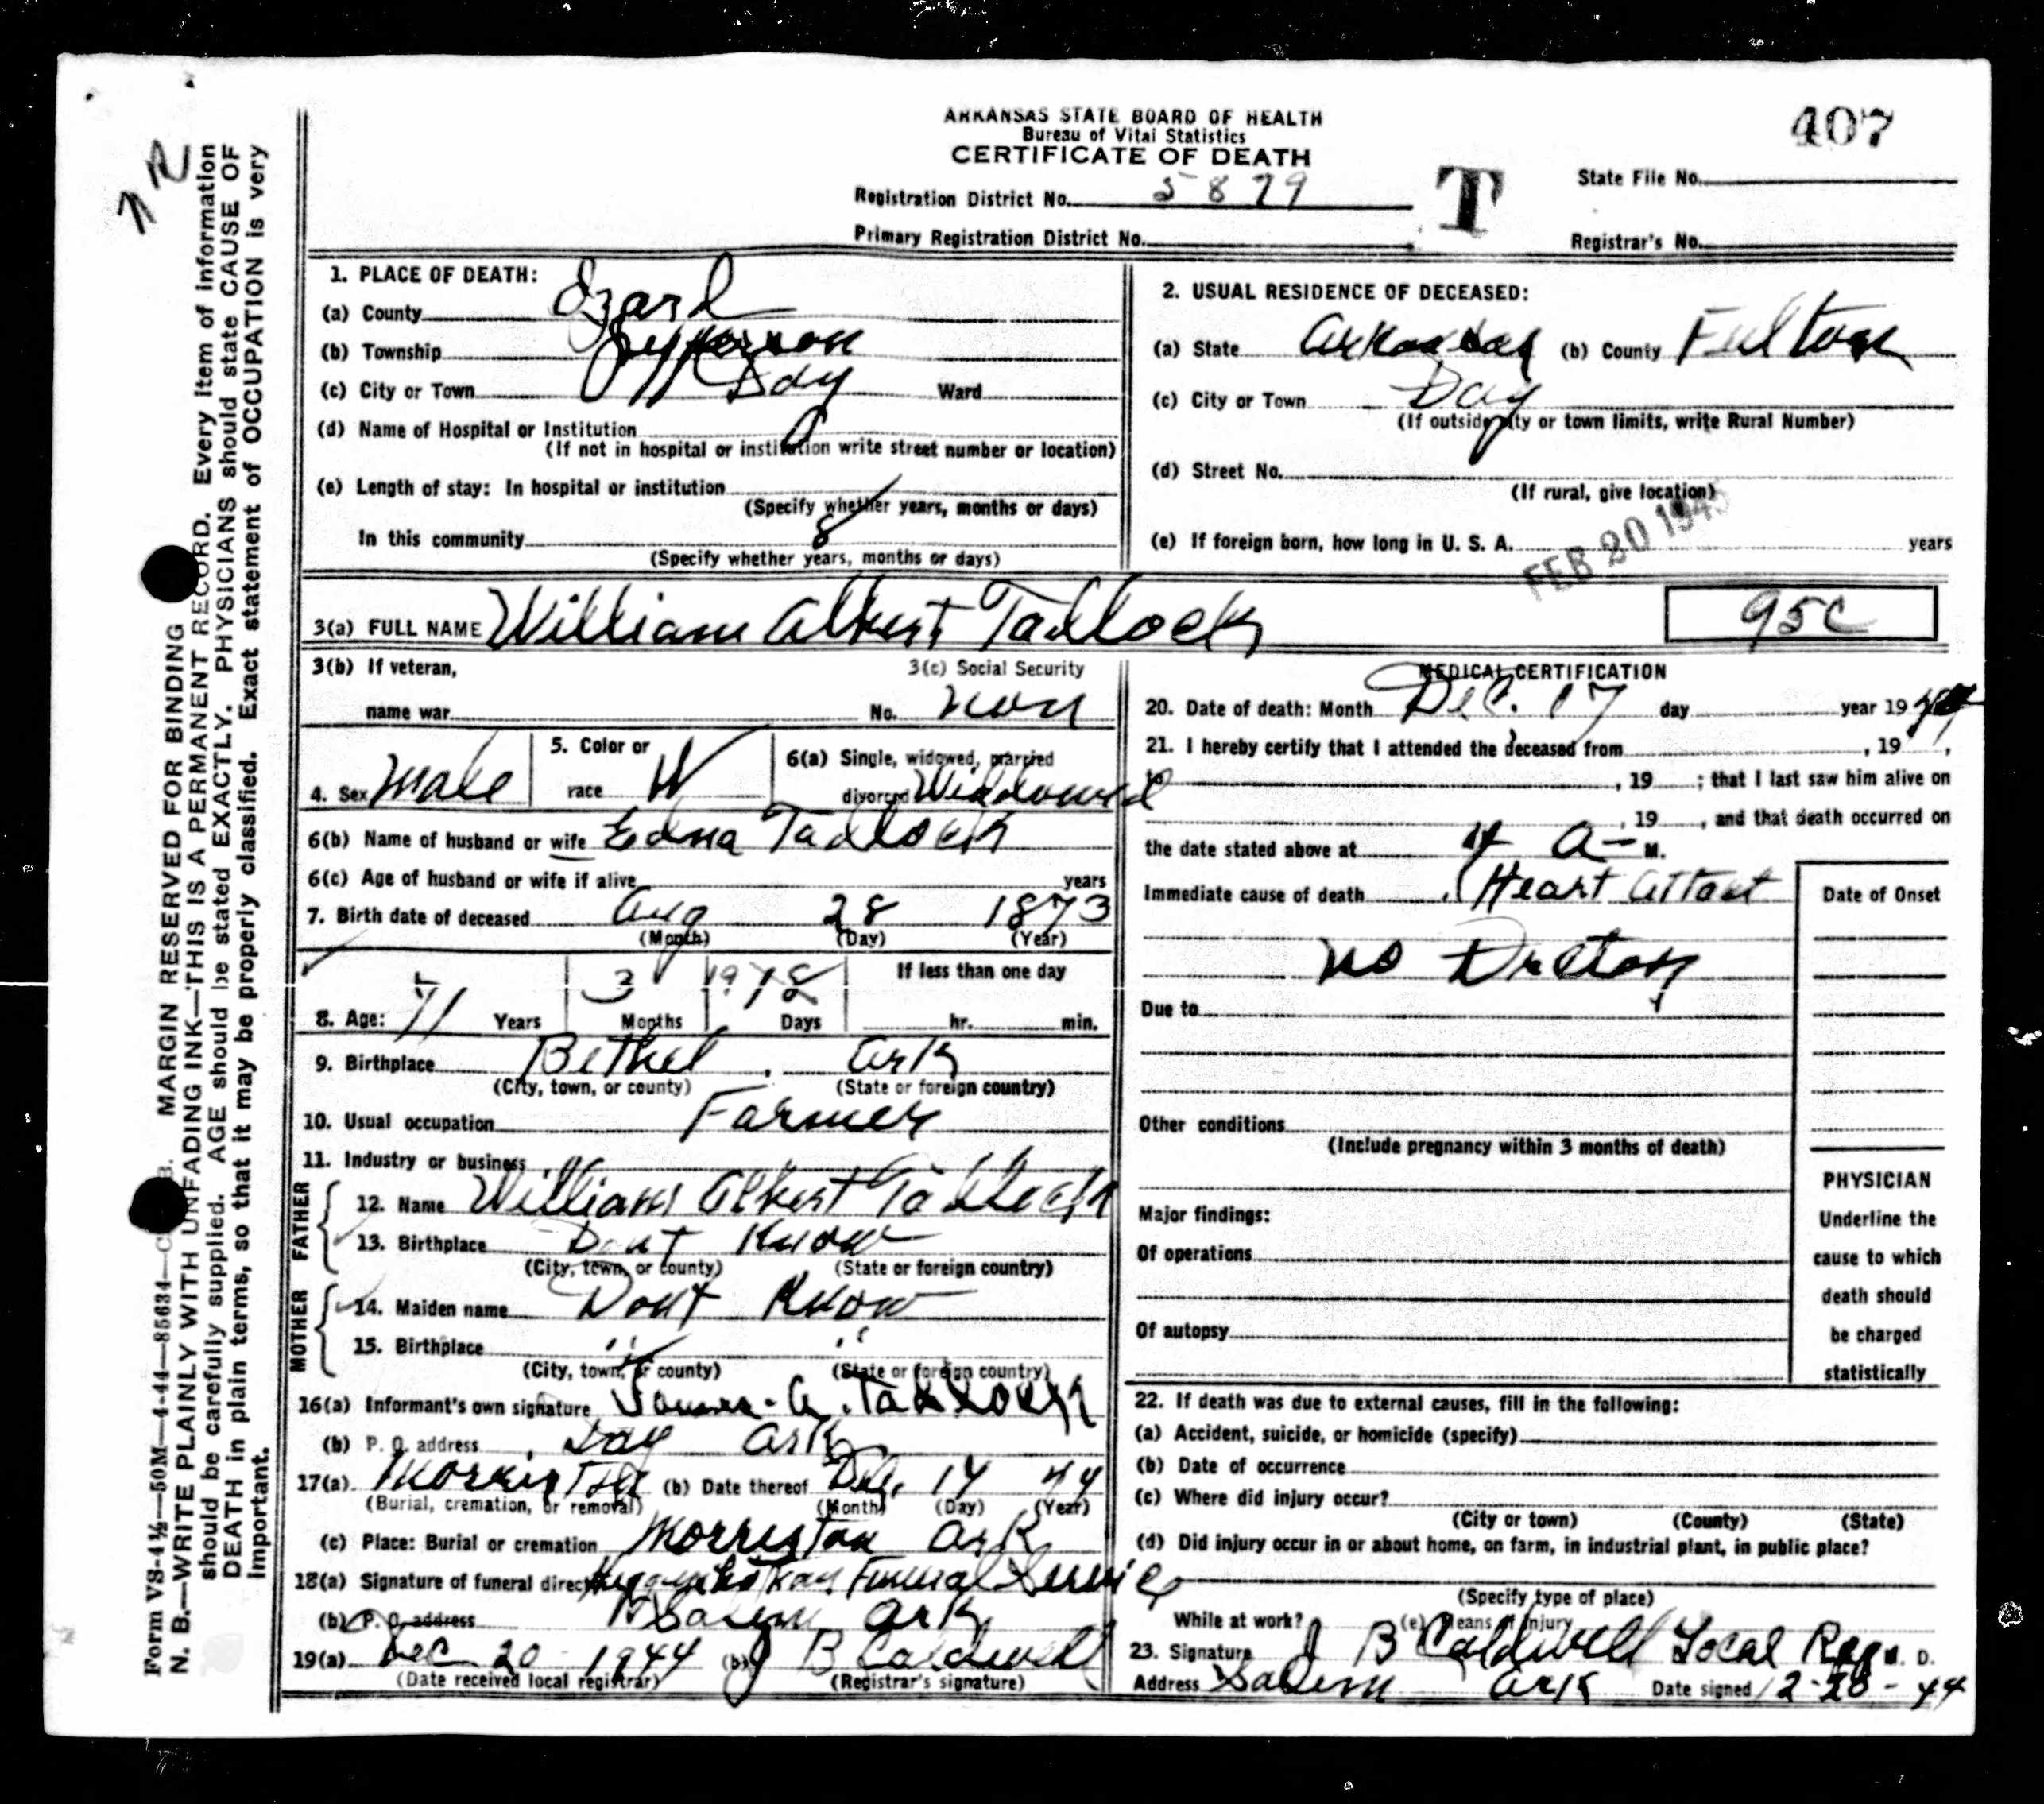 407
ARKANSAS STATE BOARD OF HEALTH
Bureau of Vital Statistics
CERTIFICATE OF DEATH
T
State File No.
Registration District No. 5879
Primary Registration District No.
Registrar's No.
1. PLACE OF DEATH:
(a) County Izard
(b) Township Jefferson
(c) City or Town Day Ward
(d) Name of Hospital or Institution
(If not in hospital or institution write street number or location)
(e) Length of stay: In hospital or institution
(Specify whether years, months or days)
In this community 8
(Specify whether years, months or days)
2. USUAL RESIDENCE OF DECEASED:
(a) State Arkansas (b) County Fulton
(c) City or Town Day
(If outside city or town limits, write Rural Number)
(d) Street No.
(If rural, give location)
FEB 20 1945
(e) If foreign born, how long in U. S. A. years
3(a) FULL NAME William Albert Tadlock
95C
3(b) If veteran,
name war
3(c) Social Security
No. non
4. Sex Male
5. Color or
race W
6(a) Single, widowed, married
divorced Widdowed
6(b) Name of husband or wife Edna Tadlock
6(c) Age of husband or wife if alive years
7. Birth date of deceased Aug 28 1873
(Month) (Day) (Year)
8. Age: 71 Years 3 Months Days
If less than one day
hr. min.
9. Birthplace Bethel, Ark
(City, town, or county) (State or foreign country)
10. Usual occupation Farmer
11. Industry or business
FATHER
12. Name William Albert Tadlock
13. Birthplace Dont Know
(City, town, or county) (State or foreign country)
MOTHER
14. Maiden name Dont Know
15. Birthplace " "
(City, town, or county) (State or foreign country)
16(a) Informant's own signature A. Tadlock
(b) P. O. address Day Ark
17(a) (b) Date thereof Dec. 44
(Burial, cremation, or removal) (Month) (Day) (Year)
(c) Place: Burial or cremation Morriston Ark
18(a) Signature of funeral director Funeral Service
(b) P. O. address Salem Ark
19(a) Dec 20 1944 (b) J B Caldwell
(Date received local registrar) (Registrar's signature)
MEDICAL CERTIFICATION
20. Date of death: Month Dec. 17 day year 1944
21. I hereby certify that I attended the deceased from , 19 ,
to , 19 ; that I last saw him alive on
, 19 , and that death occurred on
the date stated above at 4 A- M.
Immediate cause of death Heart attact
No Doctor
Due to
Other conditions
(Include pregnancy within 3 months of death)
Major findings:
Of operations
Of autopsy
Date of Onset
PHYSICIAN
Underline the
cause to which
death should
be charged
statistically
22. If death was due to external causes, fill in the following:
(a) Accident, suicide, or homicide (specify)
(b) Date of occurrence
(c) Where did injury occur?
(City or town) (County) (State)
(d) Did injury occur in or about home, on farm, in industrial plant, in public place?
(Specify type of place)
While at work? (e) Means of injury
23. Signature J B Caldwell Local Reg M. D.
Address Salem Ark Date signed 12-20-44
Form VS-4½—50M—4-44—85634 MARGIN RESERVED FOR BINDING
N. B.—WRITE PLAINLY WITH UNFADING INK—THIS IS A PERMANENT RECORD. Every item of information
should be carefully supplied. AGE should be stated EXACTLY. PHYSICIANS should state CAUSE OF
DEATH in plain terms, so that it may be properly classified. Exact statement of OCCUPATION is very
important.